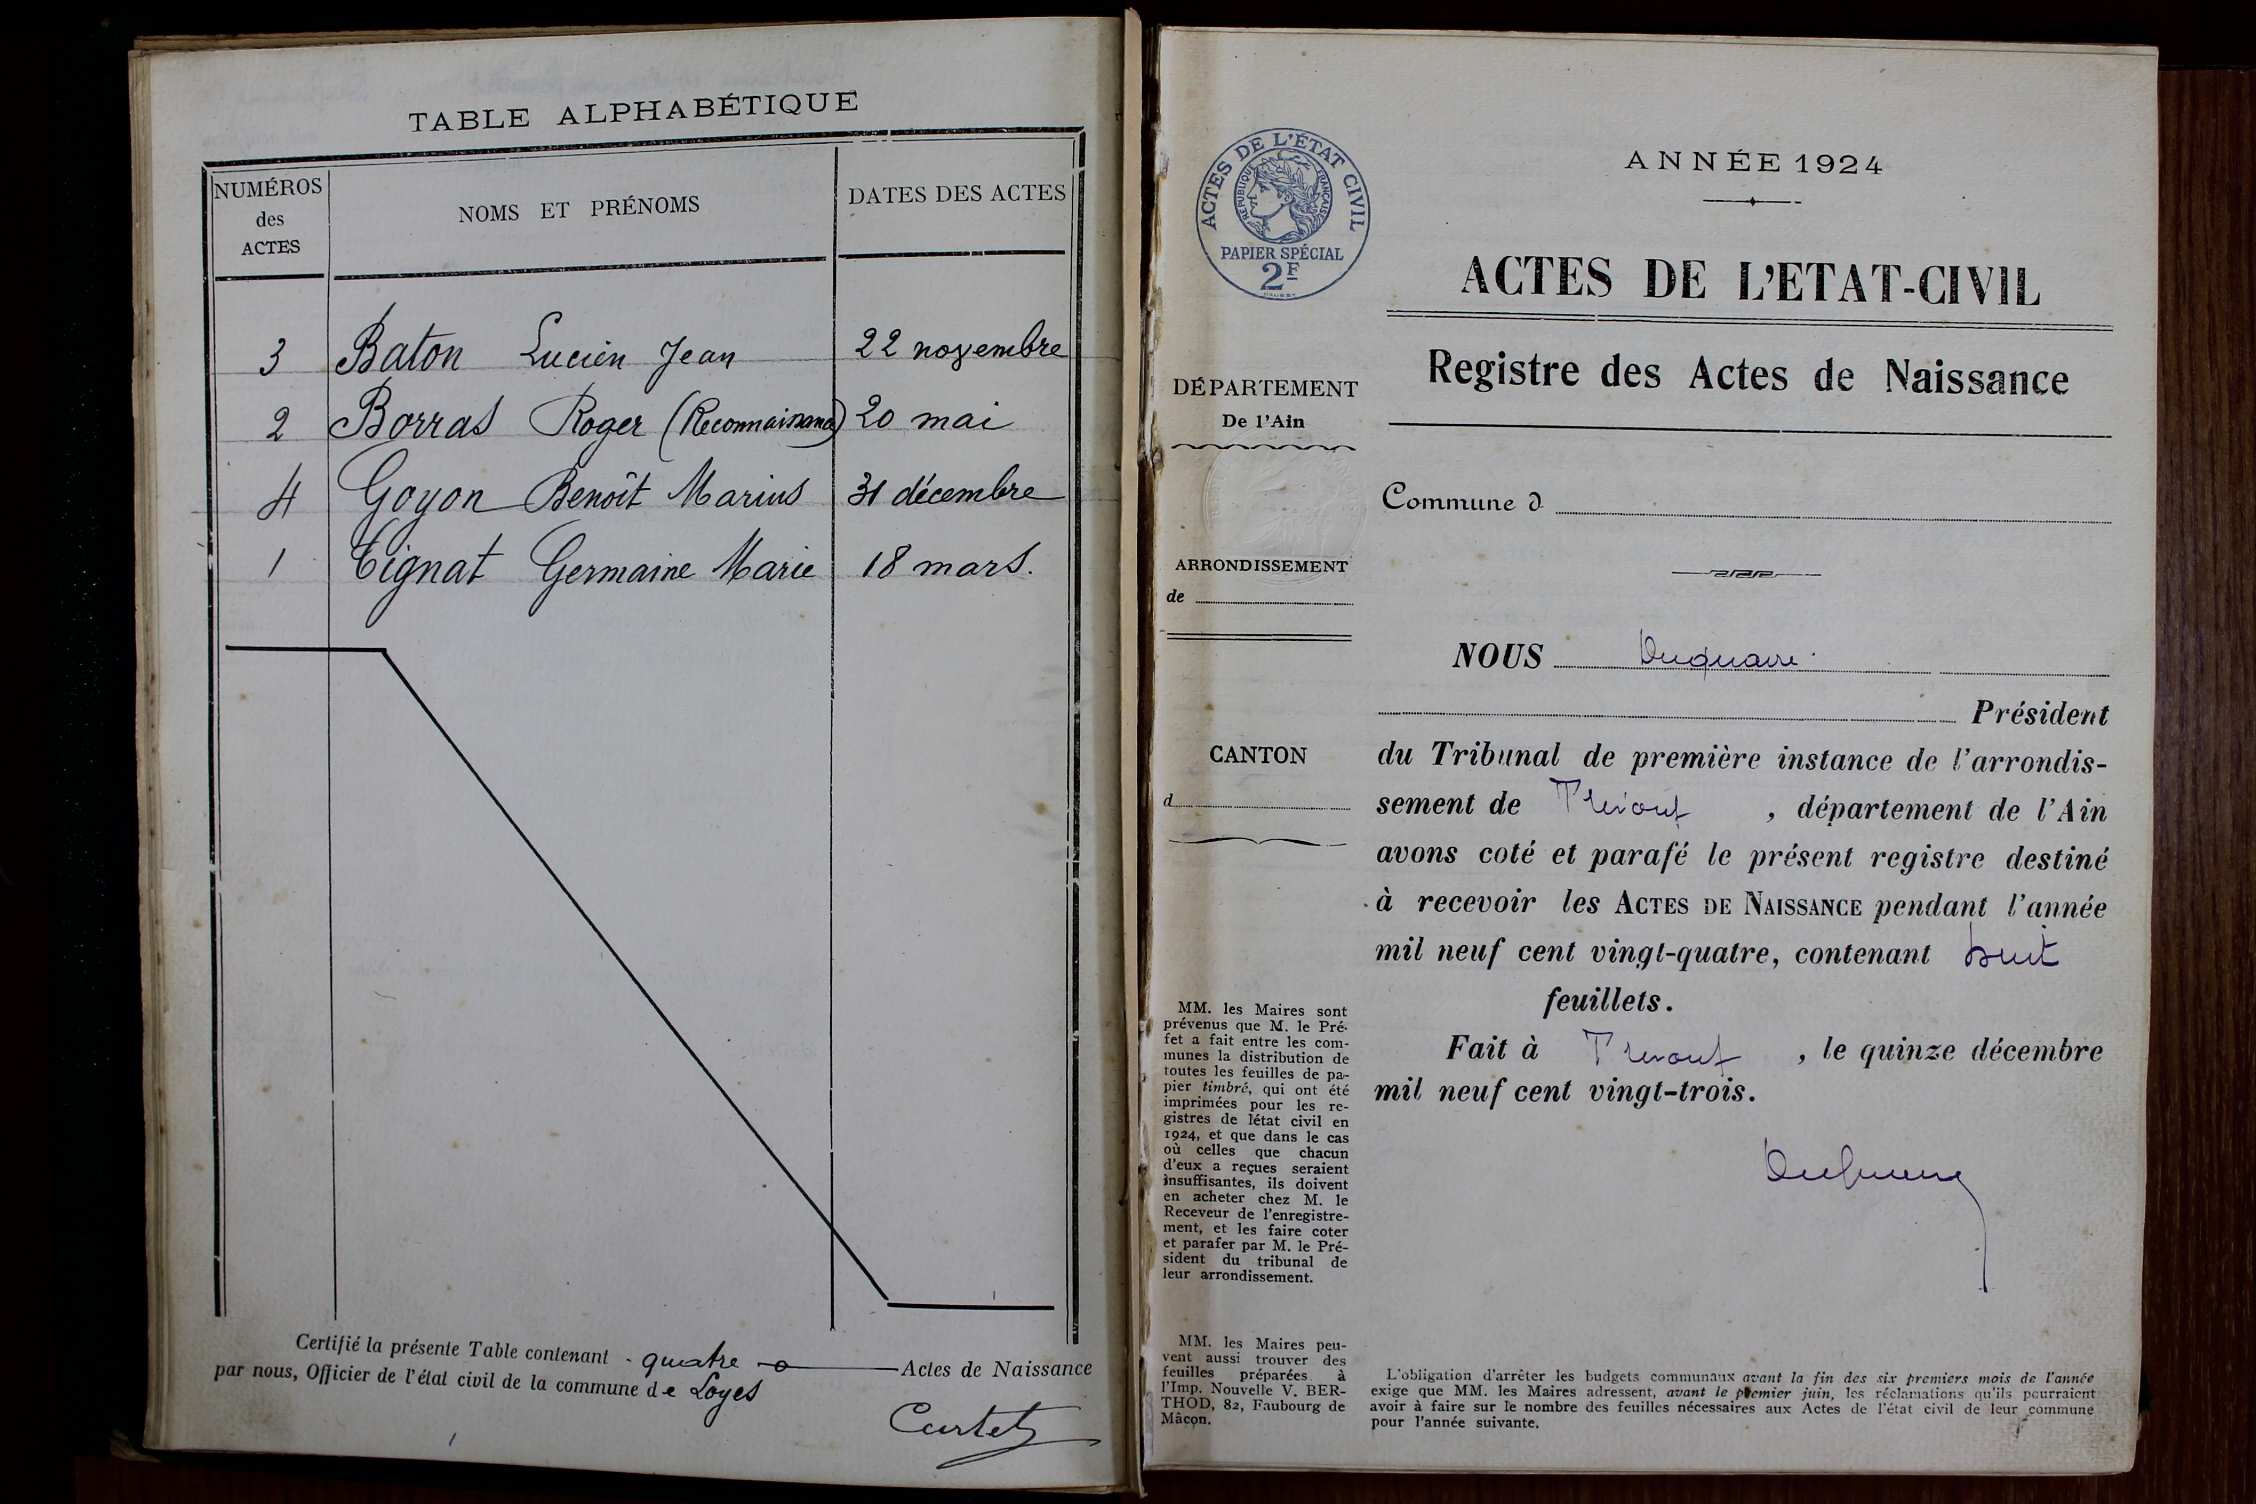 TABLE ALPHABÉTIQUE
NUMÉROS des ACTES
NOMS ET PRÉNOMS
DATES DES ACTES
3 Baton Lucien Jean 22 novembre
2 Borras Roger (Reconnaissance) 20 mai
4 Goyon Benoît Marius 31 décembre
1 Tignat Germaine Marie 18 mars.
Certifié la présente Table contenant quatre Actes de Naissance
par nous, Officier de l'état civil de la commune de Loyes
Curtet
ACTES DE L'ÉTAT CIVIL
RÉPUBLIQUE FRANÇAISE
PAPIER SPÉCIAL
2F
DÉPARTEMENT
De l'Ain
ARRONDISSEMENT
de
CANTON
d
MM. les Maires sont
prévenus que M. le Pré-
fet a fait entre les com-
munes la distribution de
toutes les feuilles de pa-
pier timbré, qui ont été
imprimées pour les re-
gistres de létat civil en
1924, et que dans le cas
où celles que chacun
d'eux a reçues seraient
insuffisantes, ils doivent
en acheter chez M. le
Receveur de l'enregistre-
ment, et les faire coter
et parafer par M. le Pré-
sident du tribunal de
leur arrondissement.
MM. les Maires peu-
vent aussi trouver des
feuilles préparées à
l'Imp. Nouvelle V. BER-
THOD, 82, Faubourg de
Mâcon.
ANNÉE 1924
ACTES DE L'ETAT-CIVIL
Registre des Actes de Naissance
Commune d
NOUS Duquaire
Président
du Tribunal de première instance de l'arrondis-
sement de Trévoux, département de l'Ain
avons coté et parafé le présent registre destiné
à recevoir les ACTES DE NAISSANCE pendant l'année
mil neuf cent vingt-quatre, contenant huit
feuillets.
Fait à Trévoux, le quinze décembre
mil neuf cent vingt-trois.
L'obligation d'arrêter les budgets communaux avant la fin des six premiers mois de l'année
exige que MM. les Maires adressent, avant le premier juin, les réclamations qu'ils pourraient
avoir à faire sur le nombre des feuilles nécessaires aux Actes de l'état civil de leur commune
pour l'année suivante.